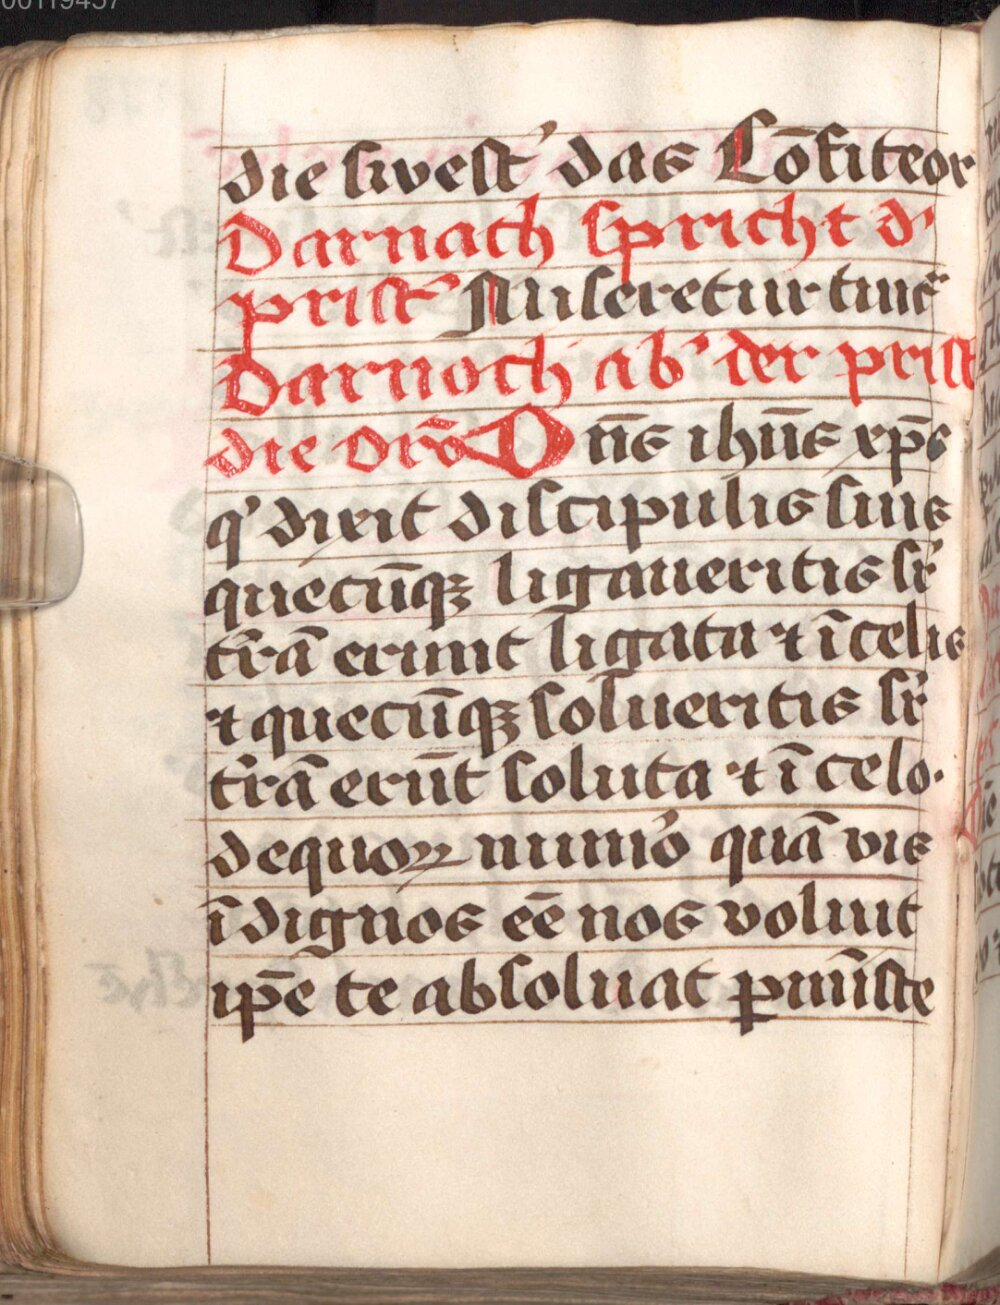 00119437
die swest' das Cōfiteor
Darnach spricht d'
prist' Misereatur tui ec̄
Darnoch ab' der prist
die orō Dn̄s ihūs xp̄s
q' dixit discipulis suis
quecūqꝫ ligaueritis sr̄
tr̄ā erunt ligata ⁊ ī celis
⁊ quecūqꝫ solueritis sr̄
tr̄ā erūt soluta ⁊ ī celo.
de quoꝝ numīo quā vis
īdignos eē nos voluit
ip̄e te absoluat ꝑ miīste